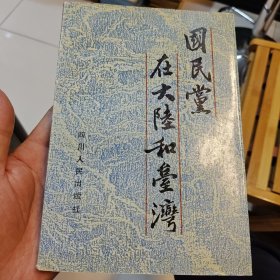 國民黨
在大陸和臺灣
四川人民出版社